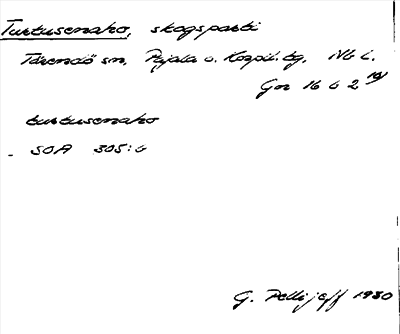 Turtusenaho, skogsparti
Tärendö sn, Pajala o. Korpil. tg. Nb l.
Gor 16 b 2
turtusenaho
- SOA 305:6
G. Pellijeff 1930